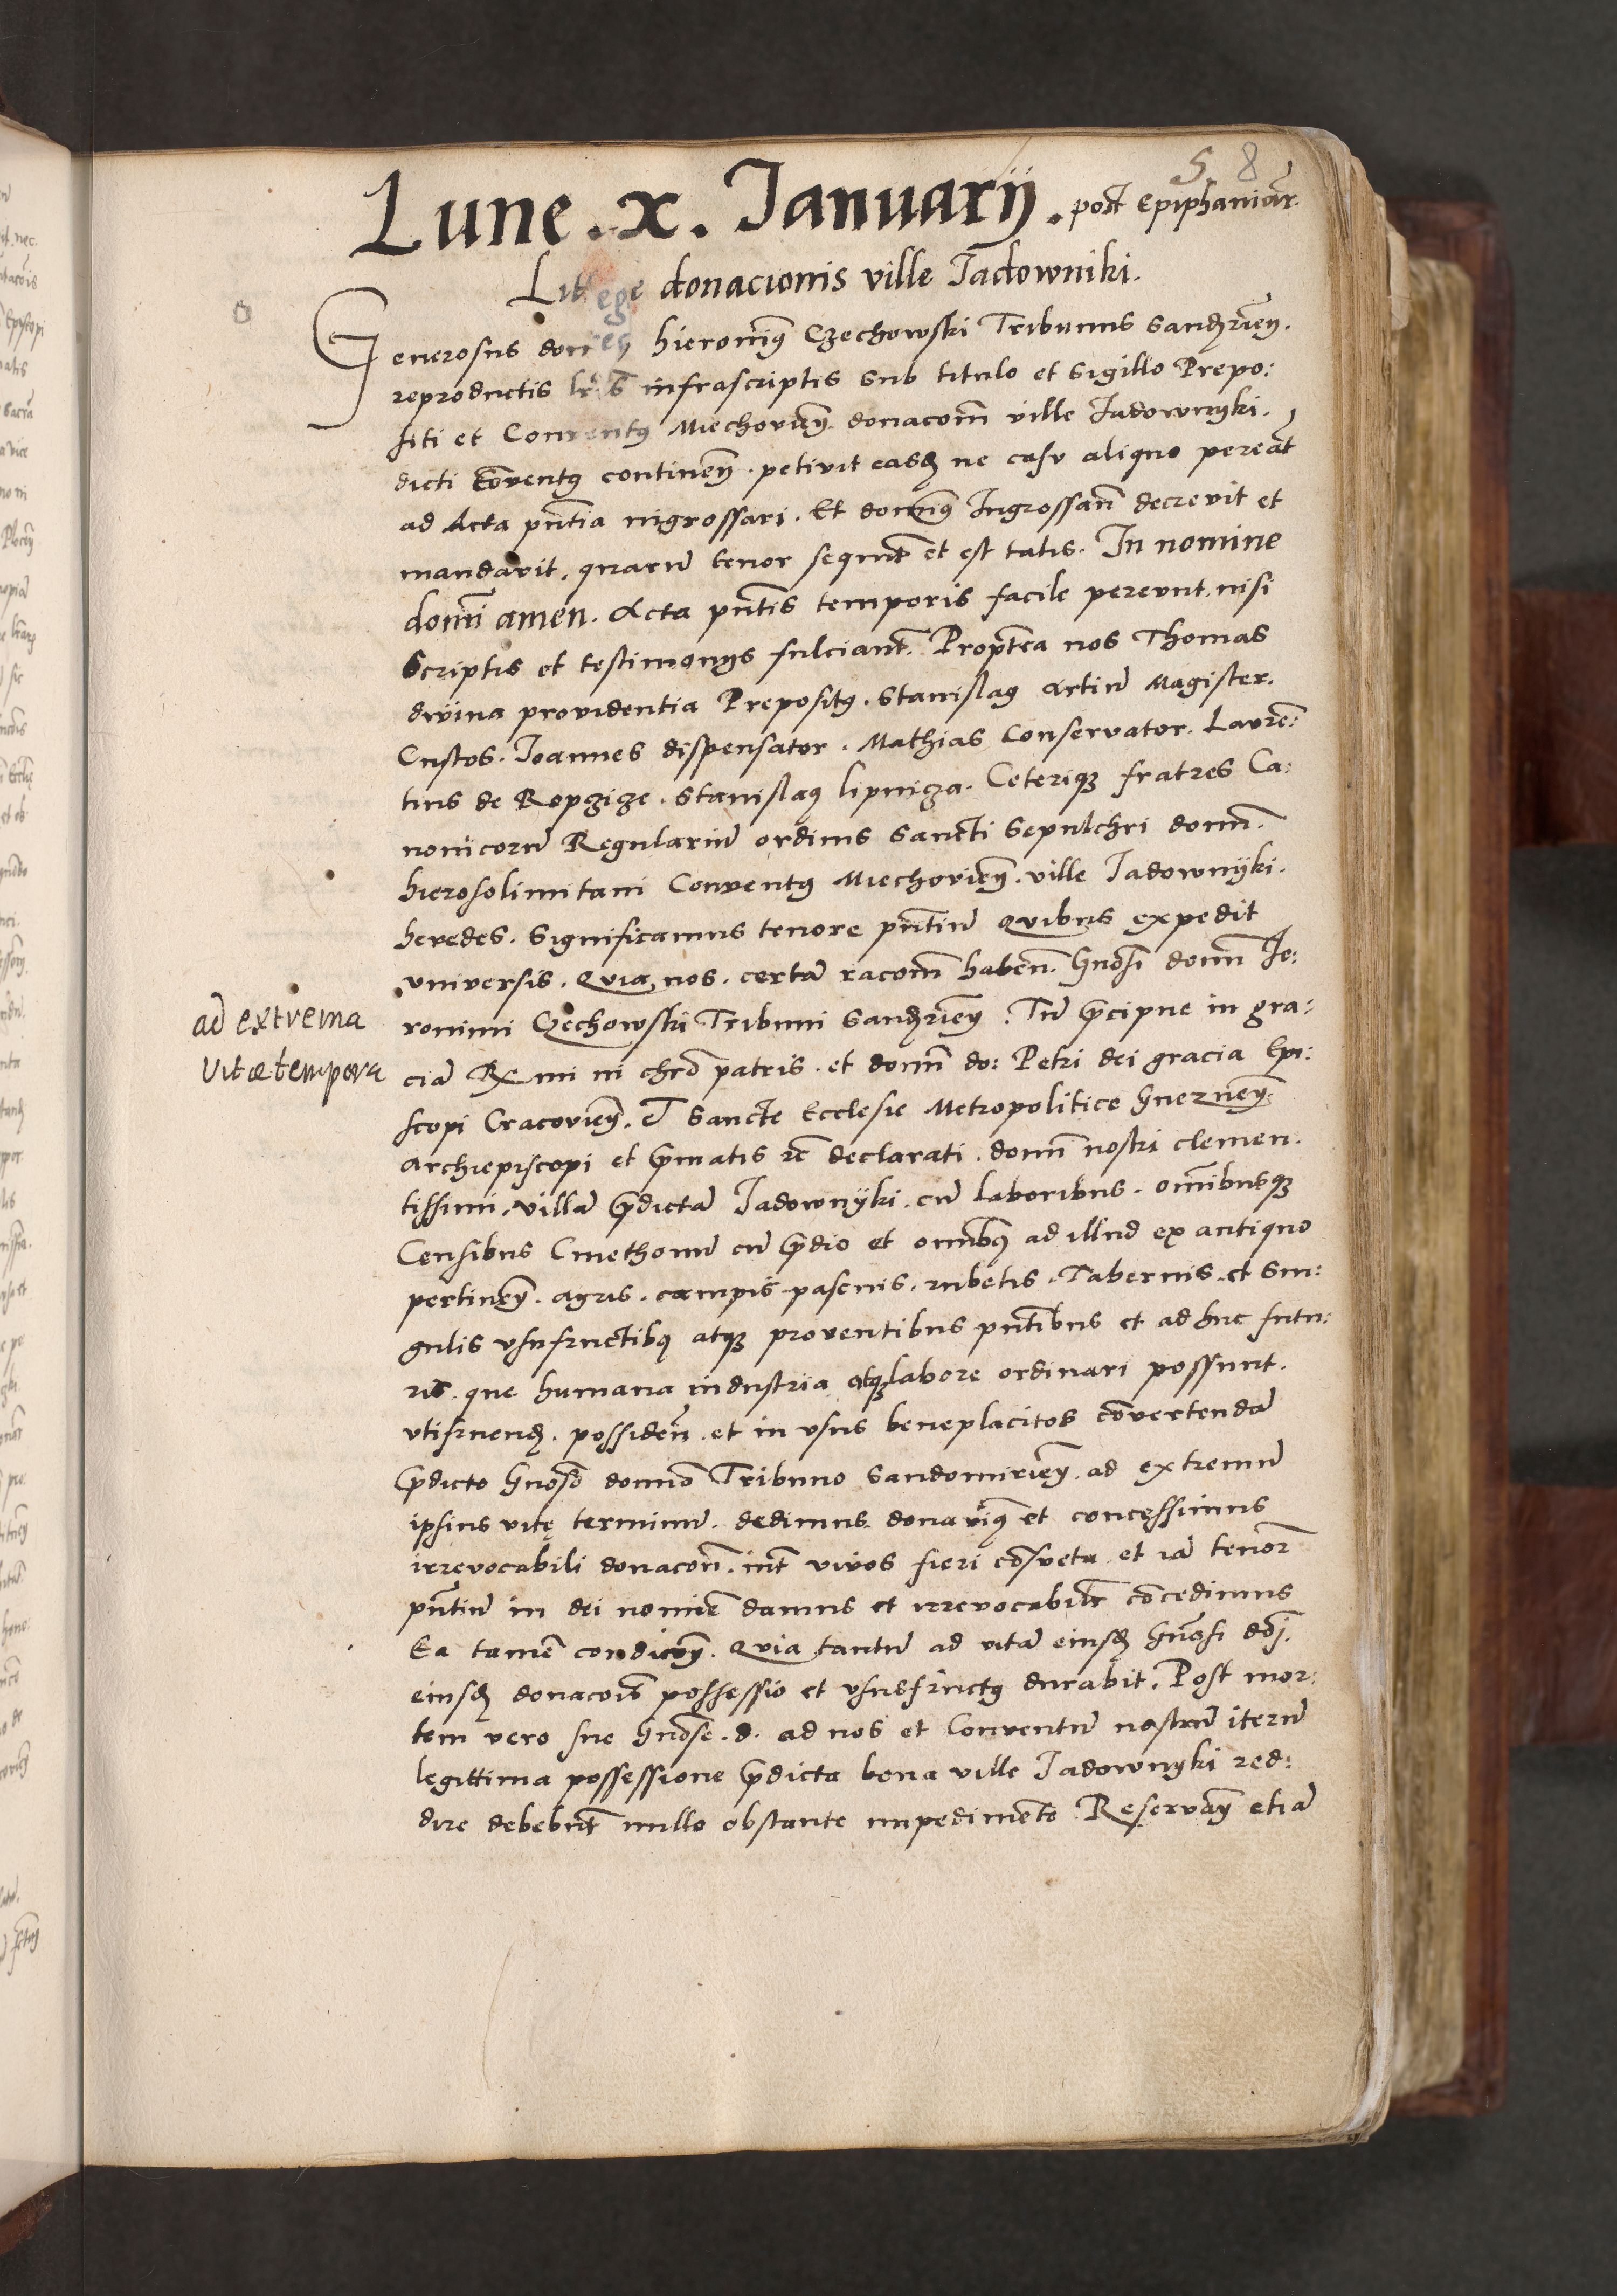 58
Lune . x. Ianuarij . post Epiphaniar.
Litt donacionis ville Jadowniki.
Generosus dom hieronimꝰ Czechowski Tribunus Sandzrien̄.
reproductis l̄ris infrascriptis sub titulo et sigillo Prepo:
siti et Conventꝰ Miechovien̄. donacom̄ ville Jadownyki.
dicti cōventꝰ continen̄. petivit easd̄ ne casu aliquo pereāt
ad Acta pn̄tia ingrossari. Et dominꝰ Ingrossan̄ decrevit et
mandavit, quarū tenor sequit̄ et est talis. In nomine
domī amen. Acta pn̄tis temporis facile pereunt, nisi
Scriptis et testimonijs fulciant̄. Propt̄ea nos Thomas
divina providentia Prepositꝰ. Stanislaꝰ Artiū Magister.
Custos. Joannes dispensator. Mathias Conservator. Laurē:
tius de Ropczicze. Stanislaꝰ lipnicza. Ceteriqꝫ fratres Ca:
nonicorū Regulariū ordinis Sancti Sepulchri domn̄.
hierosolimitani Conventꝰ Miechovien̄. ville Jadownyki.
heredes. Significamus tenore pn̄tiū Quibus expedit
universis. Quia nos. certā racom̄ haben̄. Gn̄osi domn̄ Je:
ronimi Czechowski Tribuni Sandzrien̄. Tū p̄cipue in gra:
ad extrema
vitæ tempora
ciā Rx̄mi in chr̄o patris. et domn̄ do: Petri dei gracia Epi:
scopi Cracovien̄. & Sancte Ecclesie Metropolitice Gneznen̄.
Archiepiscopi et p̄matis rc̄ declarati. domn̄ nostri clemen:
tissimi, villā p̄dictā Jadownyki. cū laboribus. om̄ibusqꝫ
Censibus Cmethonū cū p̄dio et omnibꝰ ad illud ex antiquo
pertinen̄. agris. campis. pascuis. rubetis. Tabernis. et sin:
gulis usufructibꝰ atqꝫ proventibus pn̄tibus et adhuc futu:
ris. que humana industria atqꝫ labore ordinari possunt.
utifruend̄. possiden̄. et in usus beneplacitos cōvertendā
p̄dicto Gn̄oso domno Tribuno Sandomirien̄. ad extremū
ipsius vitę terminū. dedimus donavimꝰ et concessimus
irrevocabili donacon̄. int̄ vivos fieri cōsueta. et iā tenor̄
pn̄tiū in dei nomie damus et irrevocabilit̄ cōcedimus
Ea tamē condicon̄. Quia tantū ad vitā eiusd̄ Gn̄osi dōi.
eiusd̄ donacois̄ possessio et ususfructꝰ durabit. Post mor:
tem vero sue Gn̄ose. d. ad nos et Conventū nostrū iterū
legittima possessione p̄dicta bona ville Jadownyki red:
dire debebūt nullo obstante impedimento. Reservan̄ etiā